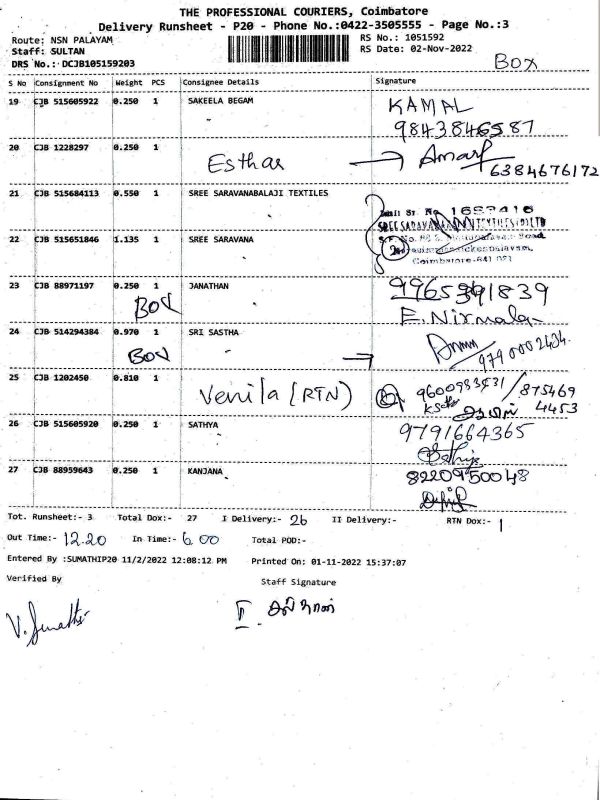 THE PROFESSIONAL COURIERS, Coimbatore
Delivery Runsheet - P20 - Phone No.:0422-3505555 - Page No.:3
Route: NSN PALAYAM
RS No.: 1051592
Staff: SULTAN
RS Date: 02-Nov-2022
DRS No.: DCJB105159203
Box
S No Consignment No Weight PCS Consignee Details Signature
19 CJB 515605922 0.250 1 SAKEELA BEGAM KAMAL
9843846587
20 CJB 1228297 0.250 1
Esthar → 6384676172
21 CJB 515684113 0.550 1 SREE SARAVANABALAJI TEXTILES
1657416
22 CJB 515651846 1.135 1 SREE SARAVANA
Coimbatore-641 021
23 CJB 88971197 0.250 1 JANATHAN 9965391839
BOV E. Nirmala
24 CJB 514294384 0.970 1 SRI SASTHA
BOV → 9790002434
25 CJB 1202450 0.810 1
Venila (RTN) 9600993431 / 875469
4453
26 CJB 515605920 0.250 1 SATHYA 9791664365
Sathiya
27 CJB 88959643 0.250 1 KANJANA 8220950048
Tot. Runsheet:- 3 Total Dox:- 27 I Delivery:- 26 II Delivery:- RTN Dox:- 1
Out Time:- 12.20 In Time:- 6.00 Total POD:-
Entered By :SUMATHIP20 11/2/2022 12:08:12 PM Printed On: 01-11-2022 15:37:07
Verified By Staff Signature
V. Sumathi